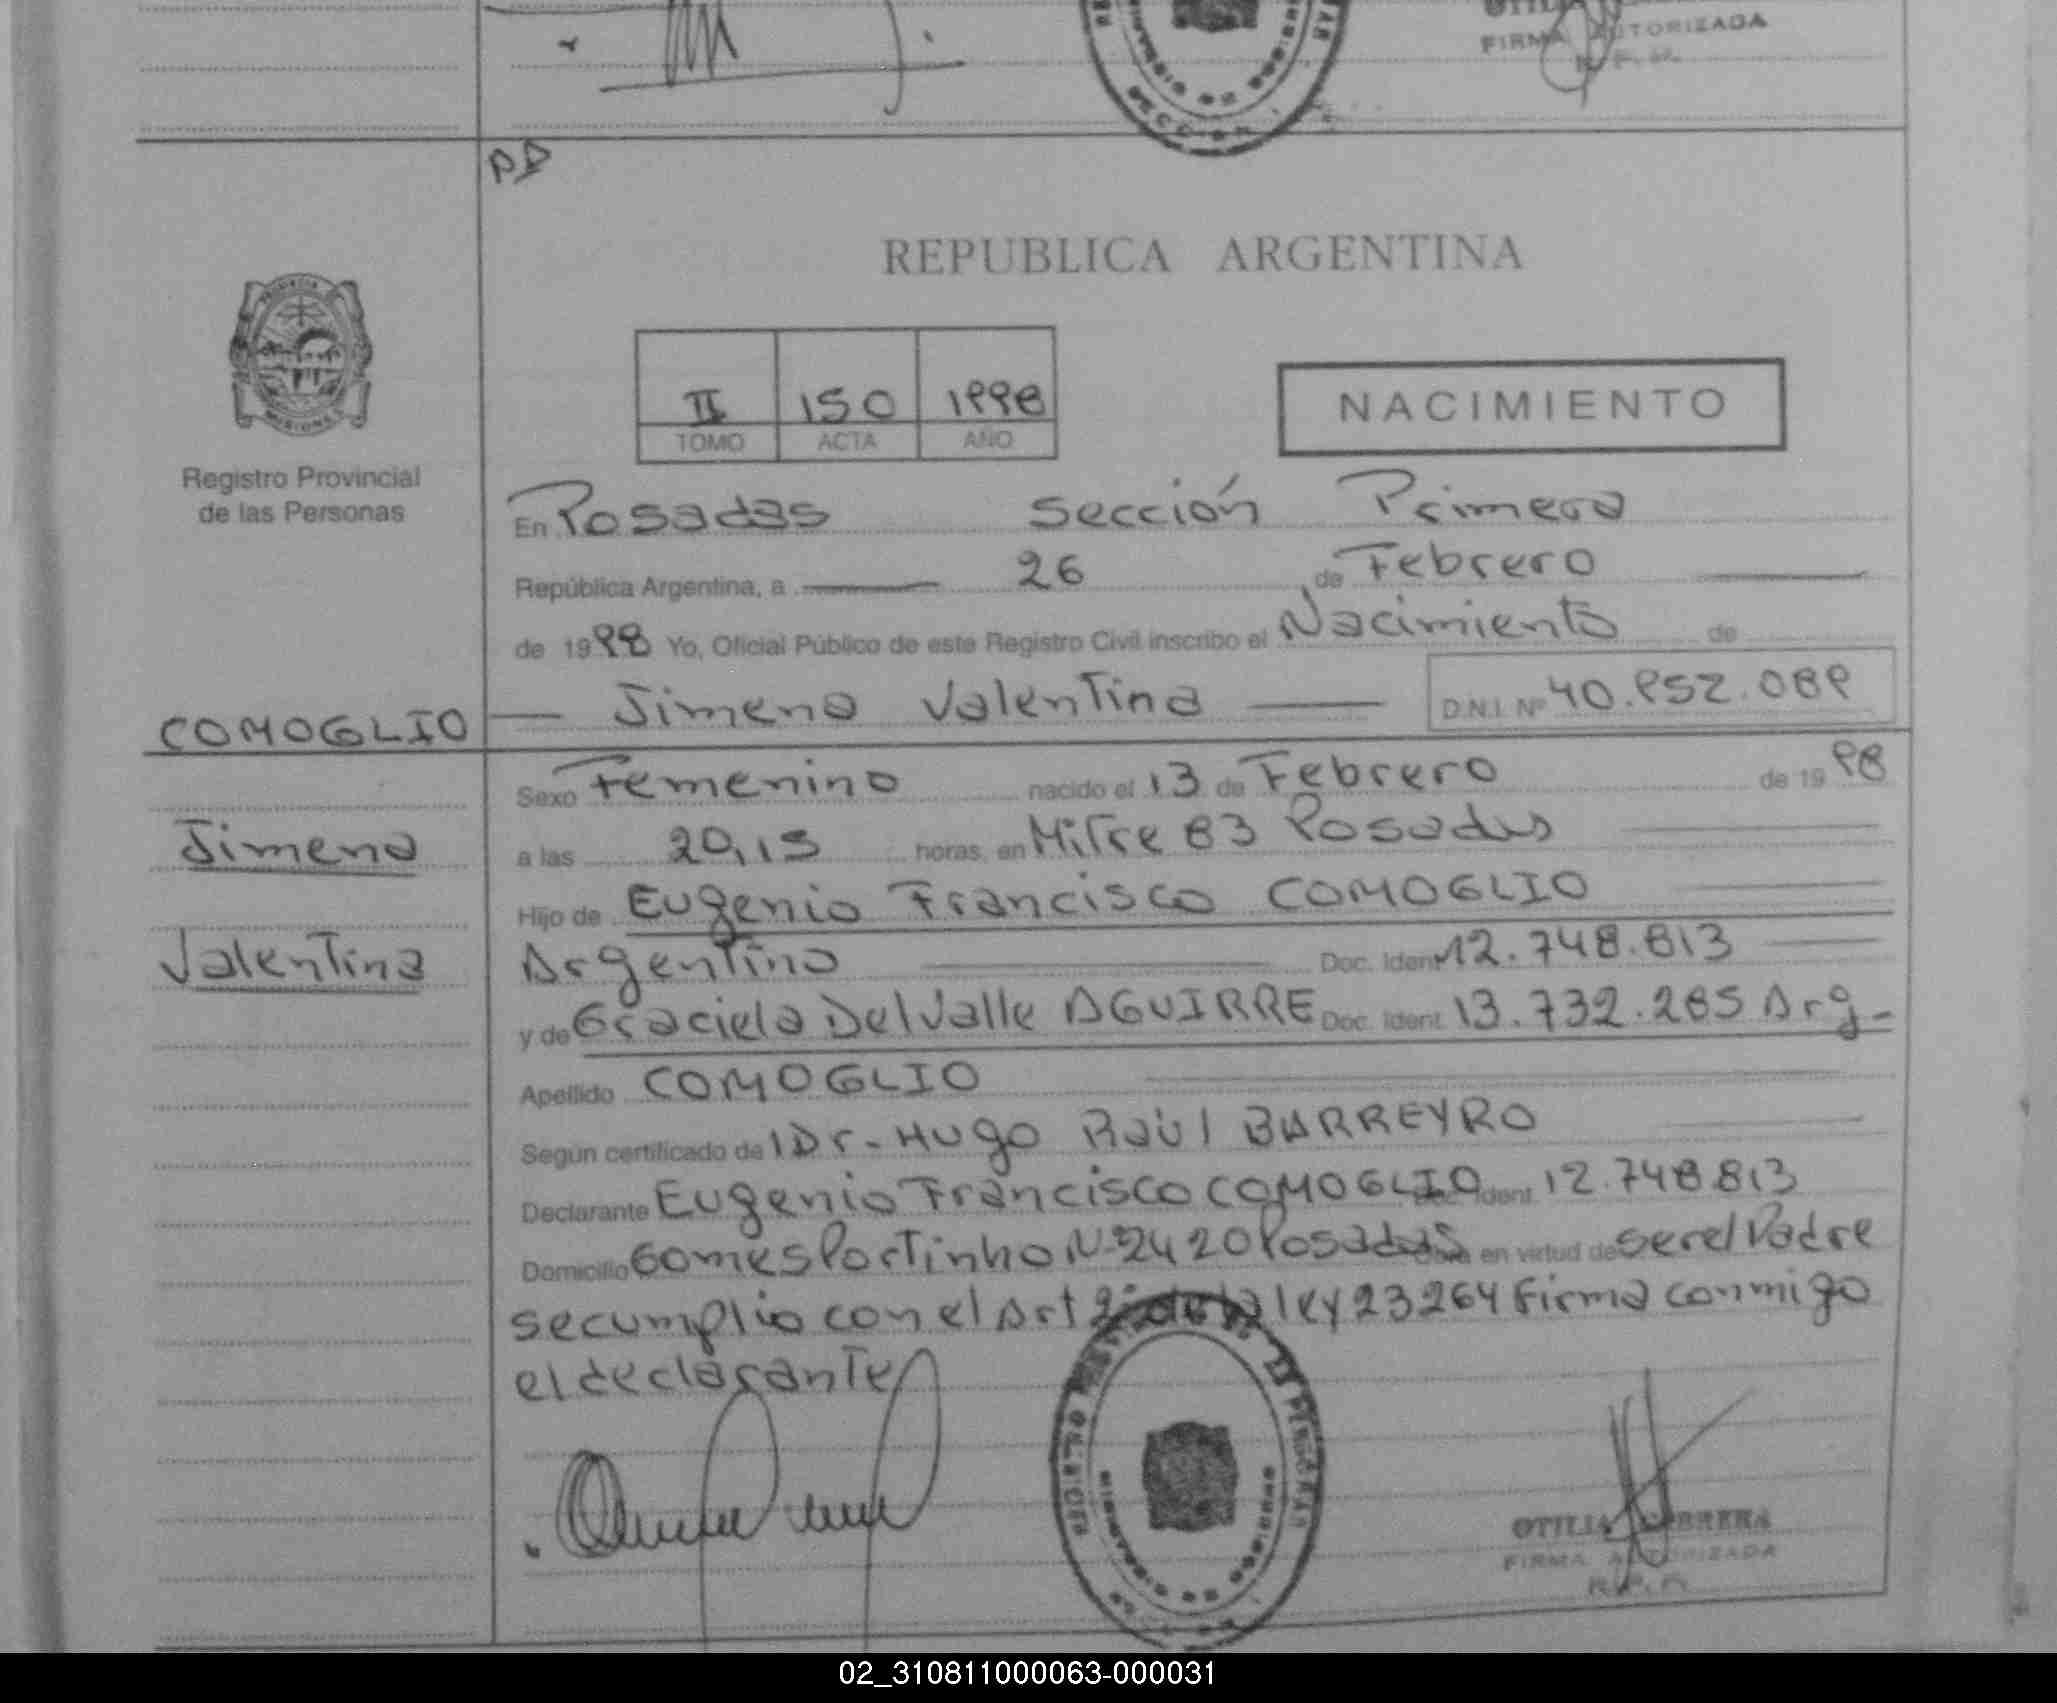 FIRMA AUTORIZADA
PD
REPUBLICA ARGENTINA
II 150 1998
TOMO ACTA AÑO
NACIMIENTO
PROVINCIA
MISIONES
Registro Provincial
de las Personas
En Posadas Sección Primera
República Argentina, a 26 de Febrero
de 1998 Yo, Oficial Público de este Registro Civil inscribo el Nacimiento de
COMOGLIO
Jimena Valentina D.N.I. Nº 40.952.089
Sexo Femenino nacido el 13 de Febrero de 1998
Jimena
a las 20,15 horas, en Mitre 83 Posadas
Hijo de Eugenio Francisco COMOGLIO
Valentina
Argentino Doc. Ident 12.748.813
y de Graciela Del Valle AGUIRRE Doc. Ident. 13.732.285 Arg.-
Apellido COMOGLIO
Según certificado del Dr. Hugo Raúl BARREYRO
Declarante Eugenio Francisco COMOGLIO Doc. Ident. 12.748.813
Domicilio Gomes Portinho Nº 2420 Posadas en virtud de ser el Padre
se cumplio con el Art de la ley 23264 Firma conmigo
el declarante
OTILIA CABRERA
FIRMA AUTORIZADA
R.P.P.
02_310811000063-000031